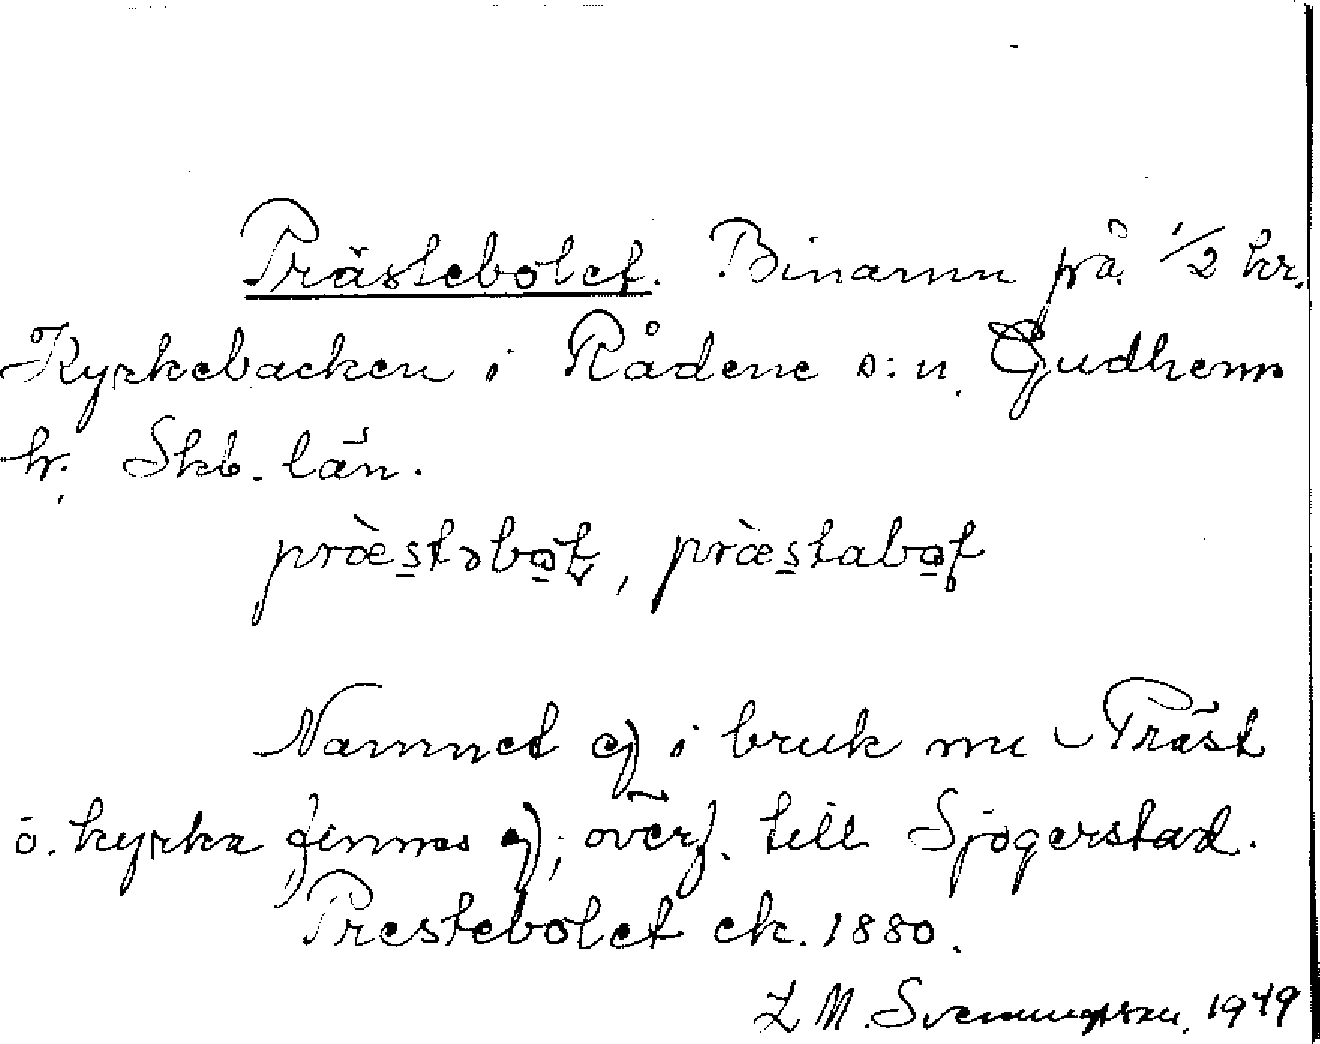 Prästebolet. Binamn på 1/2 hr.
Kyrkebacken i Rådene s:n. Gudhems
h. Skb. län.
præ̀stəbo̤t, præ̀stabo̤t
Namnet ej i bruk nu Präst
o. kyrka finnas ej; överf. till Sjogerstad.
Prestebolet ek. 1880.
L M. Svenungsson. 1949